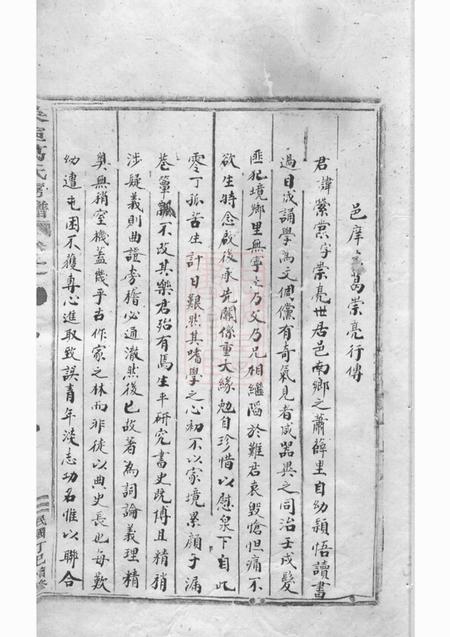 邑庠 葛崇亮行傳
君諱縈寰字崇亮世居邑南鄉之蕭薛里自幼穎悟讀書
過目成誦學為文倜儻有奇氣見者咸器異之同治壬戌髮
匪犯境鄉里無寧 乃父乃兄相繼隕於難君哀毀愴怛痛不
欲生時念啟後承先關係重大緣勉自珍惜以慰泉下自此
零丁孤苦生計日艱然其嗜學之心初不以家境累顏子漏
巷簞瓢不改其樂君殆有焉生平研究書史既博且精稍
涉疑義則曲證旁稽必通澈然後已故著為詞論義理精
奧無稍窒機蓋幾乎古作家之林而非徒以典史長也每歎
幼遭屯困不獲專心進取致誤青年淡志功名惟以聯合
葛氏宗譜 卷
民國丁巳續修